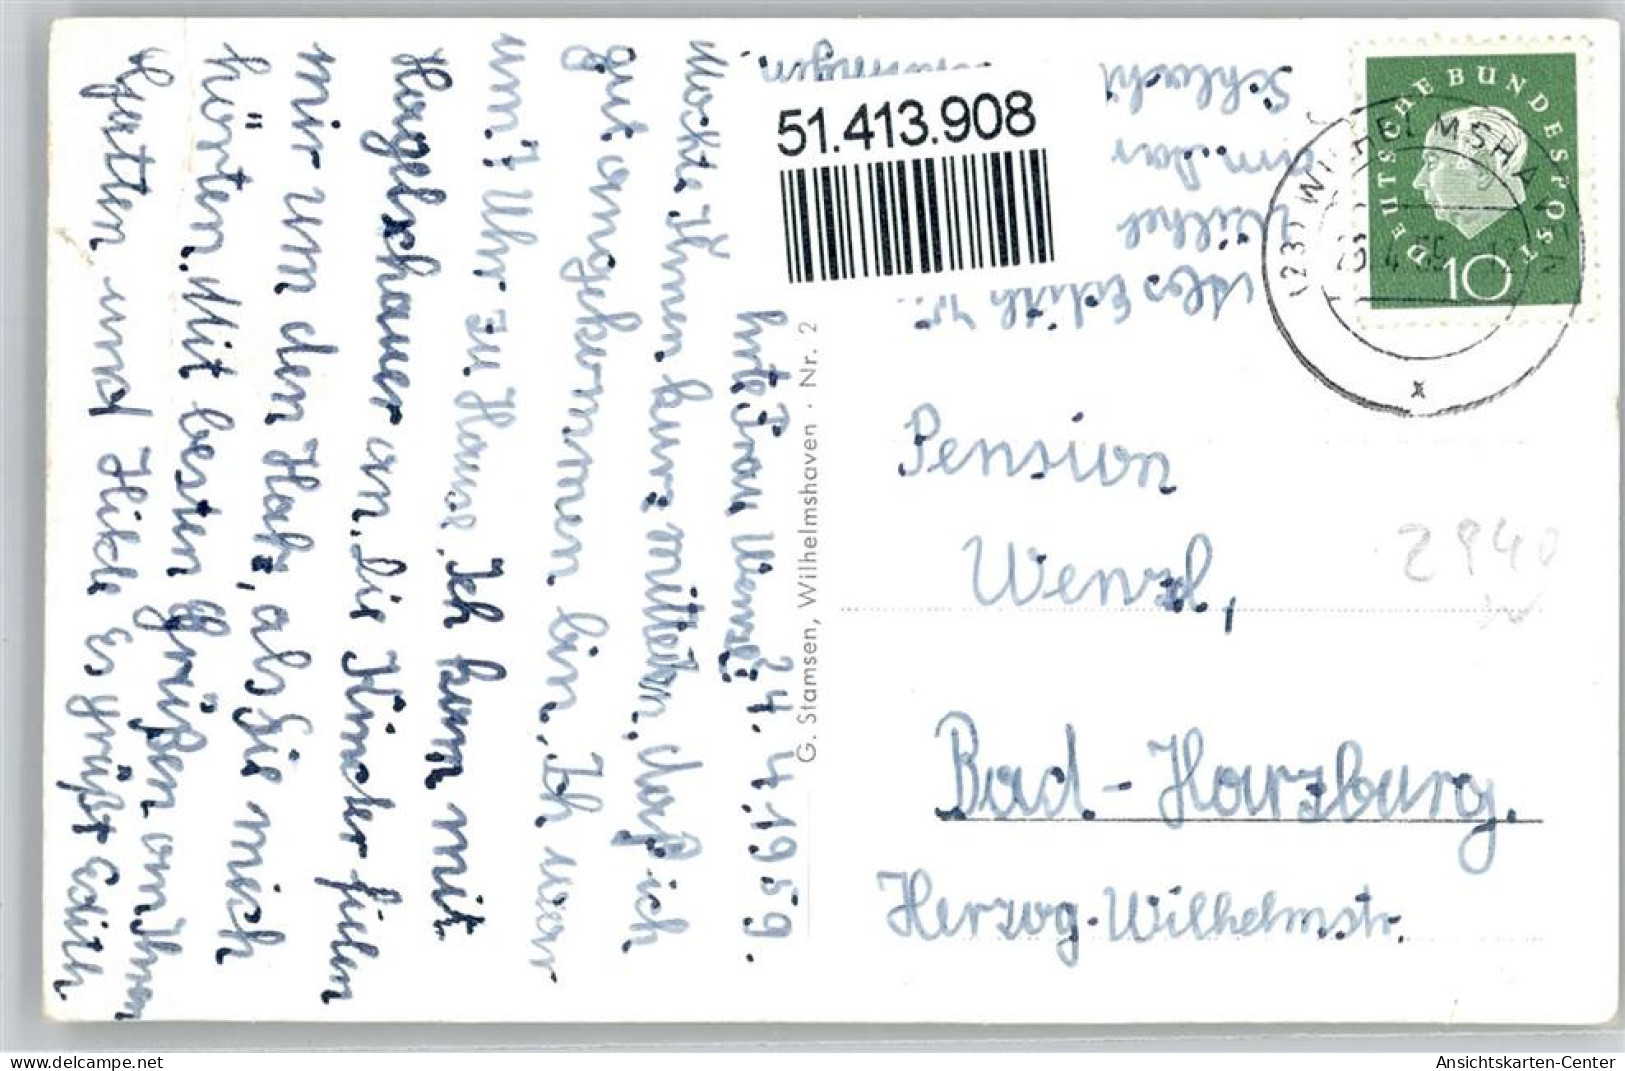 24.4.1959.
Frau Wenzel:
Möchte Ihnen kurz mitteilen, daß ich
gut angekommen bin. Ich war
um 7 Uhr zu Hause. Ich kam mit
an. Die Kinder fielen
mir um den Hals, als Sie mich
hörten. Mit besten Grüßen an Ihren
Gatten und Heike Es grüßt Edith
Schlacht
Wilhel
Edith
G. Stamsen, Wilhelmshaven · Nr. 2
51.413.908
DEUTSCHE BUNDESPOST
10
WILHELMSHAVEN
x
Pension
Wenzl,
Bad-Harzburg.
Herzog-Wilhelmstr.
2940
delcampe.net
Ansichtskarten-Center